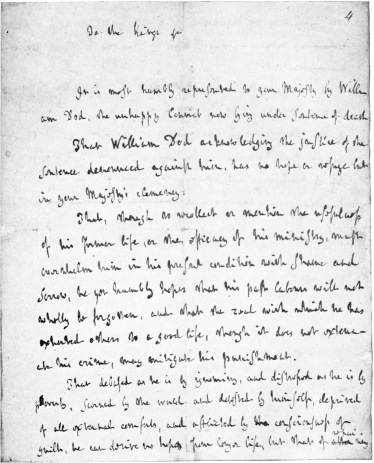 4
To the Kings &c
It is most humbly represented to your Majesty by Willi
am Dod, the unhappy Convict now lying under Sentence of death
That William Dod acknowledging the justice of the
Sentence denounced against him, has no hope or refuge but
in your Majesty's clemency.
That, though to recollect or mention the usefulness
of his former life, or the efficacy of his ministry, must
overwhelm him in his present condition with shame and
sorrow, he yet humbly hopes that his past labours will not
wholly be forgotten, and that the zeal with which he has
exhorted others to a good life, though it does not extenu-
ate his crime, may mitigate his punishment.
That debased as he is by ignominy, and distressed as he is by
poverty, scorned by the world and detested by himself, deprived
of all external comforts, and afflicted by consciousness of
guilt, he can derive no hopes from longer life, but that of